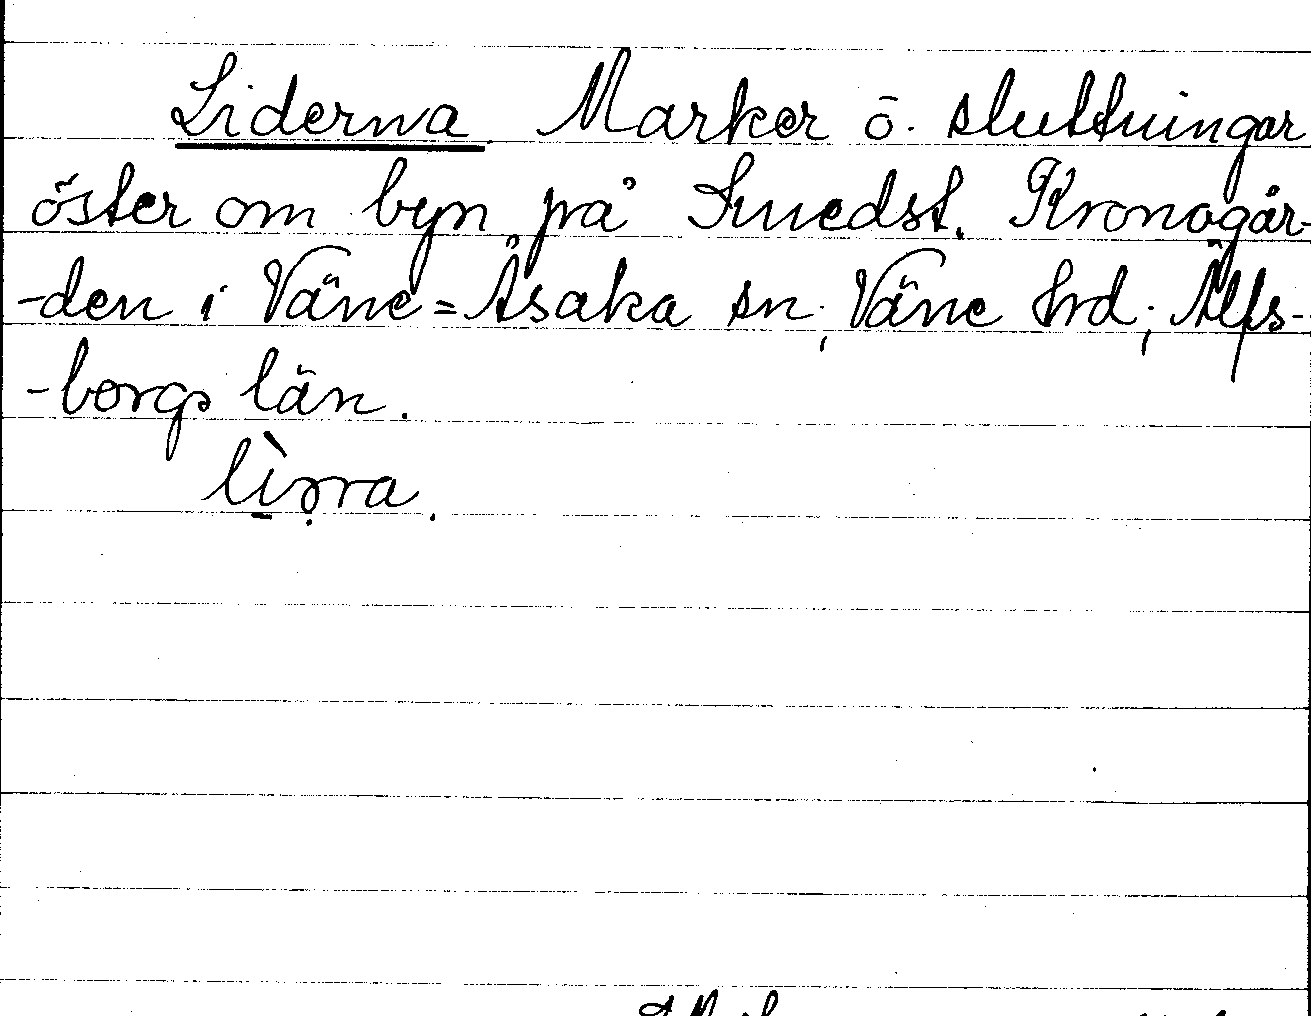 Liderna Marker ō. sluttningar
öster om byn på Smedst. Kronogår-
-den i Väne=Åsaka sn; Väne hrd; Älfs-
-borgs län.